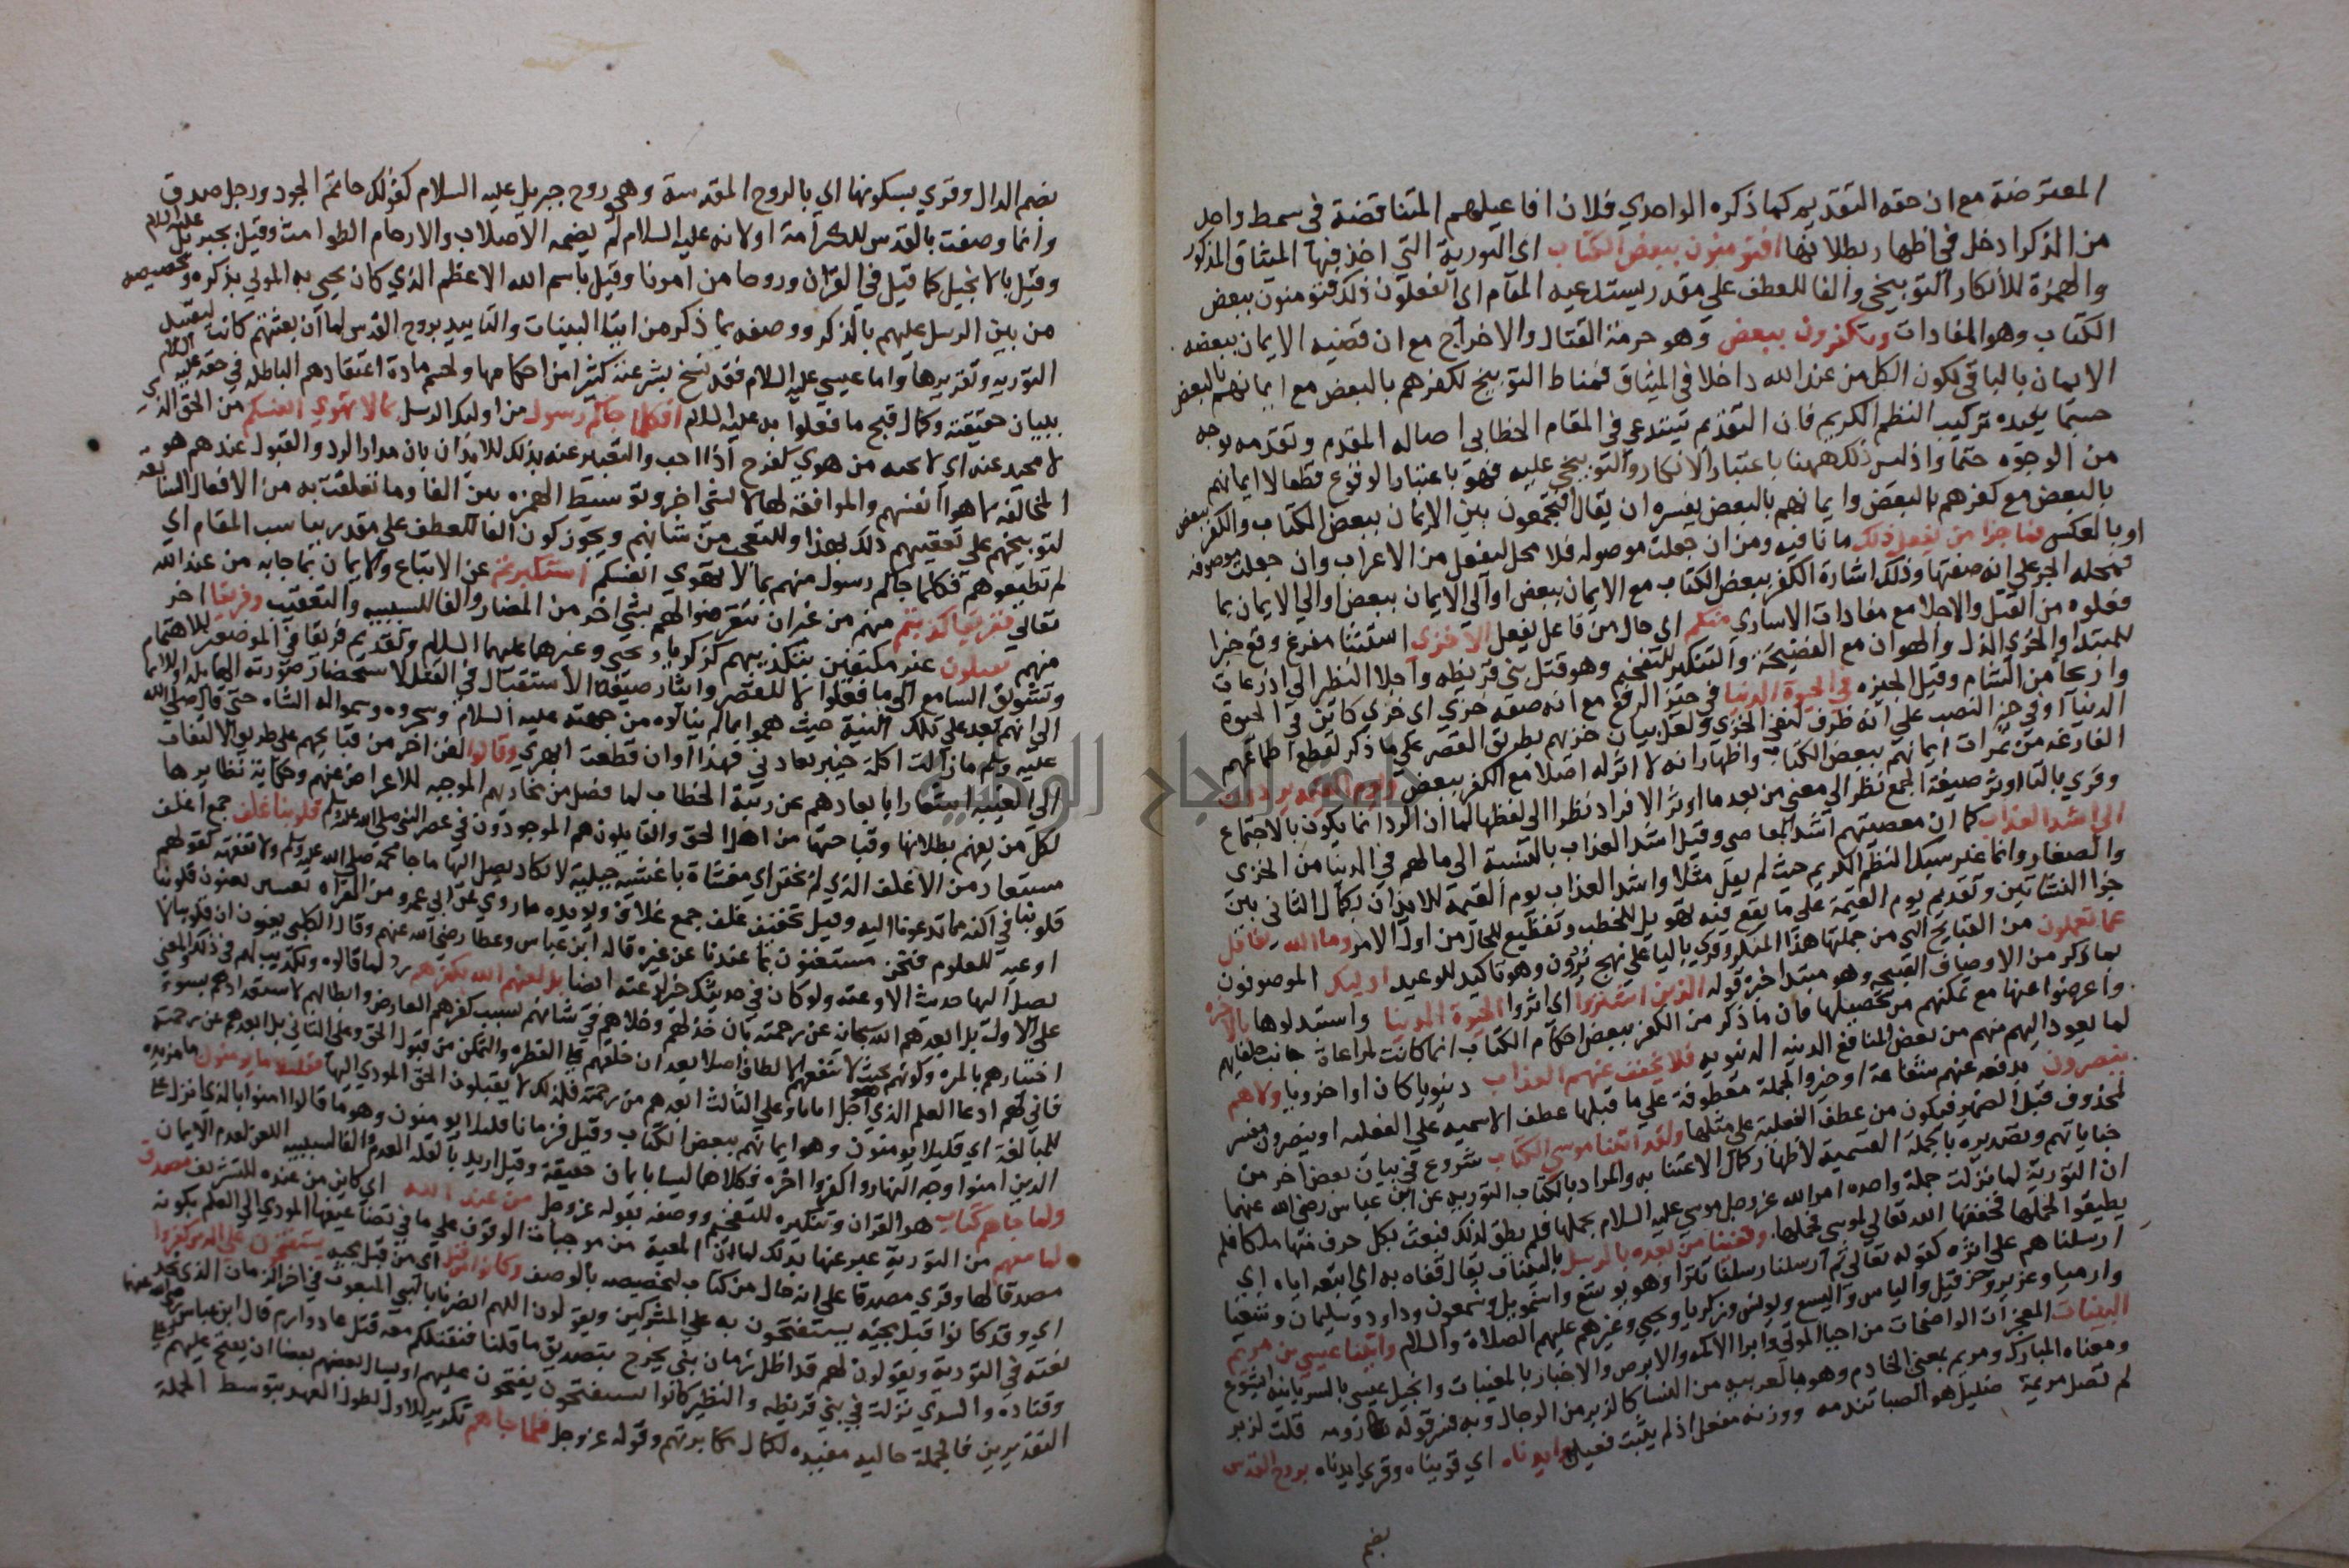 المعترضة مع ان حقه التقديم كما ذكره الواحدي فلان افاعيلهم المتناقضة في سمط واحد
من الذكر ادخل في اظهار بطلانها افتؤمنون ببعض الكتاب اي التورية التي اخذ فيها الميثاق المذكور
والهمزة للانكار التوبيخي والفا للعطف على مقدر يستدعيه المقام اي اتفعلون ذلك فتؤمنون ببعض
الكتاب وهو المفادات وتكفرون ببعض وهو حرمة القتال والاخراج مع ان قضية الايمان ببعضه
الايمان بالباقي لكون الكل من عند الله داخلا في الميثاق فمناط التوبيخ لكفرهم بالبعض مع ايمانهم بالبعض
حسبما يفيده تركيب النظم الكريم فان التقديم يستدعي في المقام الخطابي اصاله المقدم وتقدمه بوجه
من الوجوه حتما واذ ليس ذلك ههنا باعتبار الانكار والتوبيخ عليه فهو باعتبار الوقوع قطعا لا ايمانهم
بالبعض مع كفرهم بالبعض وايمانهم بالبعض يفسره ان يقال افتجمعون بين الايمان ببعض الكتاب والكفر ببعض
او بالعكس فما جزا من يفعل ذلك ما نافيه ومن ان جعلت موصوله فلا محل ليفعل من الاعراب وان جعلت موصوفه
فمحله الجر على انه صفتها وذلك اشارة الكفر ببعض الكتاب مع الايمان ببعض او الى الايمان بما
فعلوه من القتل والاجلا مع مفادات الاسارى منكم اي حال من فاعل يفعل الا خزي استثنا مفرغ وقع خبرا
للمبتدا والخزي الذل والهوان مع الفضيحة والتنكير للتفخيم وهو قتل بني قريظه واجلا النضير الى اذرعات
واريحا من الشام وقيل الجزيه في الحيوة الدنيا في حيز الرفع مع انه صفه خزي اي خزي كائن في الحيوة
الدنيا او في حيز النصب على انه ظرف لنفس الخزي ولعل بيان خزيهم بطريق القصر على ما ذكر لقطع اطماعهم
الفارغه من ثمرات ايمانهم ببعض الكتاب واظهار انه لا اثر له اصلا مع الكفر ببعض ويوم القيمه يردون
وقري بالتا اوثر صيغة الجمع نظر الى معنى من بعد ما اوثر الافراد نظرا الى لفظها لما ان الرد انما يكون بالاجتماع
الى اشد العذاب كما ان معصيتهم اشد المعاصي وقيل اشد العذاب بالنسبة الى ما لهم في الدنيا من الخزي
والصغار وانما غير سبك النظم الكريم حيث لم يقل مثلا واشد العذاب يوم القيمة للايذان بكمال الثاني بين
جزا النشاتين وتقديم يوم القيمة على ما يقع فيه لتهويل الخطب وتفظيع الحال من اول الامر وما الله بغافل
عما تعملون من القبايح التي من جملتها هذا المنكر وقري باليا على نهج يردون وهو تاكيد للوعيد اوليك الموصوفون
بما ذكر من الاوصاف القبيحه وهو مبتدا خبره قوله الذين اشتروا اي اثروا الحيوة الدنيا واستبدلوها بالاخره
واعرضوا عنها مع تمكنهم من تحصيلها فان ما ذكر من الكفر ببعض احكام الكتاب انما كانت لمراعاة جانب حلفايهم
لما يعود اليهم منهم من بعض المنافع الدنيه الدنيويه فلا يخفف عنهم العذاب دنيويا كان او اخرويا ولا هم
ينصرون بدفعه عنهم بشفاعة او جبر والجملة معطوفة على ما قبلها عطف الاسميه على الفعليه او ينصرون مفسر
لمحذوف قبل الضمير فيكون من عطف الفعليه على مثلها ولقد اتينا موسى الكتاب شروع في بيان بعض اخر من
جناياتهم وتصديره بالجملة القسمية لاظهار كمال الاعتنا به والمراد بالكتاب التوريه عن ابن عباس رضي الله عنهما
ان التورية لما نزلت جملة واحده امر الله عز وجل موسى عليه السلام بحملها فلم يطق لذلك فبعث بكل حرف منها ملكا فلم
يطيقوا لحملها فخففها الله تعالى لموسى فحملها وقفينا من بعده بالرسل يقال قفاه به اي اتبعه اياه اي
ارسلناهم على اثره كقوله تعالى ثم ارسلنا رسلنا تترا وهو يوشع واشمويل وشمعون وداود وسليمان وشعيا
وارميا وعزير وحزقيل والياس واليسع ويونس وزكريا ويحيى وغيرهم عليهم الصلاة والسلام واتينا عيسى بن مريم
البينات المعجزات الواضحات من احيا الموتى وابرا الاكمه والابرص والاخبار بالمغيبات والانجيل وعيسى بالسريانيه ايشوع
ومعناه المبارك ومريم بمعنى الخادم وهو بالعربيه من النسا كالزير من الرجال وبه فسر قوله قلت لزير
لم تصل مريمة ضليل هو الصبا تندمه ووزنه مفعل اذ لم يثبت فعيل وايدناه اي قويناه وقري ايدناه بروح القدس
بضم
بضم الدال وقري بسكونها اي بالروح المقدسة وهي روح جبريل عليه السلام كقولك حاتم الجود ورجل صدق
وانما وصفت بالقدس للكرامة او لانه عليه السلام لم يضمه الاصلاب والارحام الطوامث وقيل بجبريل عليه السلام
وقيل بالانجيل كما قيل في القران وروحا من امرنا وقيل باسم الله الاعظم الذي كان يحيى به الموتى بذكره وتخصيصه
من بين الرسل عليهم بالذكر ووصفه بما ذكر من ايتا البينات والتاييد بروح القدس لما ان بعثتهم كانت لتنفيذ
التوريه وتقريرها واما عيسى عليه السلام فقد نسخ بشرعه كثيرا من احكامها ولحسم مادة اعتقادهم الباطله في حقه عليه السلام
ببيان حقيقته وكمال قبح ما فعلوا به عليه السلام افكلما جاكم رسول من اوليك الرسل بما لا تهوى انفسكم من الحق الذي
لا محيد عنه اي لا تحبه من هوي كفرح اذا احب والتعبير عنه بذلك للايذان بان مدار الرد والقبول عندهم هو
المخالفة لاهوا انفسهم والموافقة لها لا لشى اخر وتوسيط الهمزه بين الفا وما تعلقت به من الافعال السابقه
لتوبيخهم على تعقيبهم ذلك بهذا وللتعجيب من شانهم ويجوز كون الفا للعطف على مقدر يناسب المقام اي
لم تطيعوهم فكلما جاكم رسول منهم بما لا تهوى انفسكم استكبرتم عن الاتباع والايمان بما جا به من عند الله
تعالى ففريقا كذبتم منهم من غير ان تتعرضوا لهم بشي اخر من المضار والفا للسببيه والتعقيب وفريقا اخر
منهم تقتلون غير مكتفين بتكذيبهم كزكريا ويحيى وغيرهما عليهما السلام وتقديم فريقا في الموضعين للاهتمام
وتشويق السامع الى ما فعلوا لا للقصر وايثار صيغة الاستقبال في القتل لاستحضار صورته الهايله او للايما
الى انهم بعد على تلك النية حيث هموا بما لم ينالوه من جهته عليه السلام وسحروه وسموا له الشاه حتى قال صلى الله
عليه وسلم ما زالت اكلة خيبر تعادني فهذا اوان قطعت ابهري وقالوا لفن اخر من قبايحهم على طريق الالتفات
الى الغيبه اشعارا بابعادهم عن رتبة الخطاب لما فصل من مخازيهم الموجبه للاعراض عنهم وحكاية نظايرها
لكل من يفهم بطلانها وقباحتها من اهل الحق والقايلون هم الموجودون في عصر النبي صلى الله عليه وسلم قلوبنا غلف جمع اغلف
مستعار من الاغلف الذي لم يختن اي مغشاة باغشيه جبلية لا يكاد يصل اليها ما جا به محمد صلى الله عليه وسلم ولا تفقهه كقولهم
قلوبنا في اكنه مما تدعونا اليه وقيل تخفيف غلف جمع غلاف ويويده ما روي عن ابي عمرو من القراه بضمتين يعنون قلوبنا
اوعيه للعلوم فنحن مستغنون بما عندنا عن غيره قاله ابن عباس وعطا رضي الله عنهم وقال الكلبي يعنون ان قلوبنا لا
يصل اليها حديث الا وعته ولو كان في حديثك خير لوعته ايضا بل لعنهم الله بكفرهم رد لما قالوه وتكذيب لهم في ذلك والمعنى
على الاول بل ابعدهم الله سبحان عن رحمته بان خذلهم وخلاهم في شانهم بسبب كفرهم العارض وابطالهم لاستعدادهم بسوء
اختيارهم بالمره وكونهم بحيث لا تنفعهم الالطاف اصلا بعد ان خلقهم على الفطره والتمكن من قبول الحق وعلى الثاني بل ابعدهم عن رحمته
فانى لهم ادعا العلم الذي هو اجل اثارها وعلى الثالث ابعدهم من رحمته فلذلك لا يقبلون الحق المودي اليها فقليلا ما يومنون ما مزيده
للمبالغة اي قليلا يومنون وهو ايمانهم ببعض الكتاب وقيل فزمانا قليلا يومنون وهو ما قالوا امنوا بالذي انزل على
الذين امنوا وجه النهار واكفروا اخره فكلاهما ليسا بايمان حقيقة وقيل اريد بالقله العدم والفا لسببيه اللعن لعدم الايمان
ولما جاهم كتاب هو القران وتنكيره للتفخيم ووصفه بقوله عز وجل من عند الله اي كاين من عنده للتشريف مصدق
لما معهم من التورية عبر عنها بذلك لما ان المعية من موجبات الوقوف على ما في تضاعيفها المودي الى العلم بكونه
مصدقا لها وقري مصدقا على انه حال من كتاب لتخصيصه بالوصف وكانوا من قبل اي من قبل مجيه يستفتحون على الذين كفروا
اي وقد كانوا قبل مجيه يستفتحون به على المشركين ويقولون اللهم انصرنا بالنبي المبعوث في اخر الزمان الذي نجد
نعته في التورية ويقولون لهم قد اظل زمان نبي يخرج بتصديق ما قلنا فنقتلكم معه قتل عاد وارم قال ابن عباس رضي الله عنهما
وقتاده والسدي نزلت في بني قريظه والنظير كانوا يستفتحون عليهم او يسال بعضهم بعضا ان يفتح عليهم
التقديرين فالجملة حاليه مفيده لكمال مكابرتهم وقوله عز وجل فلما جاهم تكرير للاول لطول العهد بتوسط الجملة
جامعة النجاح الوطنية